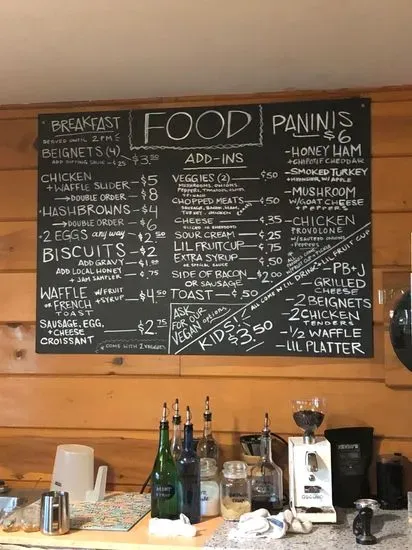 BREAKFAST
SERVED UNTIL 2PM
BEIGNETS (4) $3.00
ADD DIPPING SAUCE $.25
CHICKEN + WAFFLE SLIDER $5
→ DOUBLE ORDER $8
HASHBROWNS $4
→ DOUBLE ORDER $6
2 EGGS any way $2.50
BISCUITS $2
ADD GRAVY $1.00
ADD LOCAL HONEY + JAM SAMPLER $.75
WAFFLE or FRENCH TOAST W/ FRUIT + SYRUP $4.50
SAUSAGE, EGG, + CHEESE CROISSANT $2.75
* COME WITH 2 VEGGIES
FOOD
ADD-INS
VEGGIES (2) $.50
MUSHROOMS, ONIONS,
PEPPERS, TOMATOES,
SPINACH
CHOPPED MEATS $.50
SAUSAGE, BACON, HAM,
TURKEY, CHICKEN
CHEESE $.35
SLICED OR SHREDDED
SOUR CREAM $.25
LIL FRUIT CUP $.75
EXTRA SYRUP $.50
OR SPECIAL SAUCE
SIDE OF BACON OR SAUSAGE $2.00
TOAST $.50
ASK FOR OUR VEGAN options
KIDS! $3.50
ALL COME W/ LIL DRINK + LIL FRUIT CUP
PANINIS $6
-HONEY HAM
+ CHIPOTLE CHEDDAR
-SMOKED TURKEY
+ MUENSTER W/ APPLE
-MUSHROOM
W/ GOAT CHEESE + PEPPERS
-CHICKEN
PROVOLONE
-PB+J
-GRILLED CHEESE
-2 BEIGNETS
-2 CHICKEN TENDERS
-1/2 WAFFLE
-LIL PLATTER